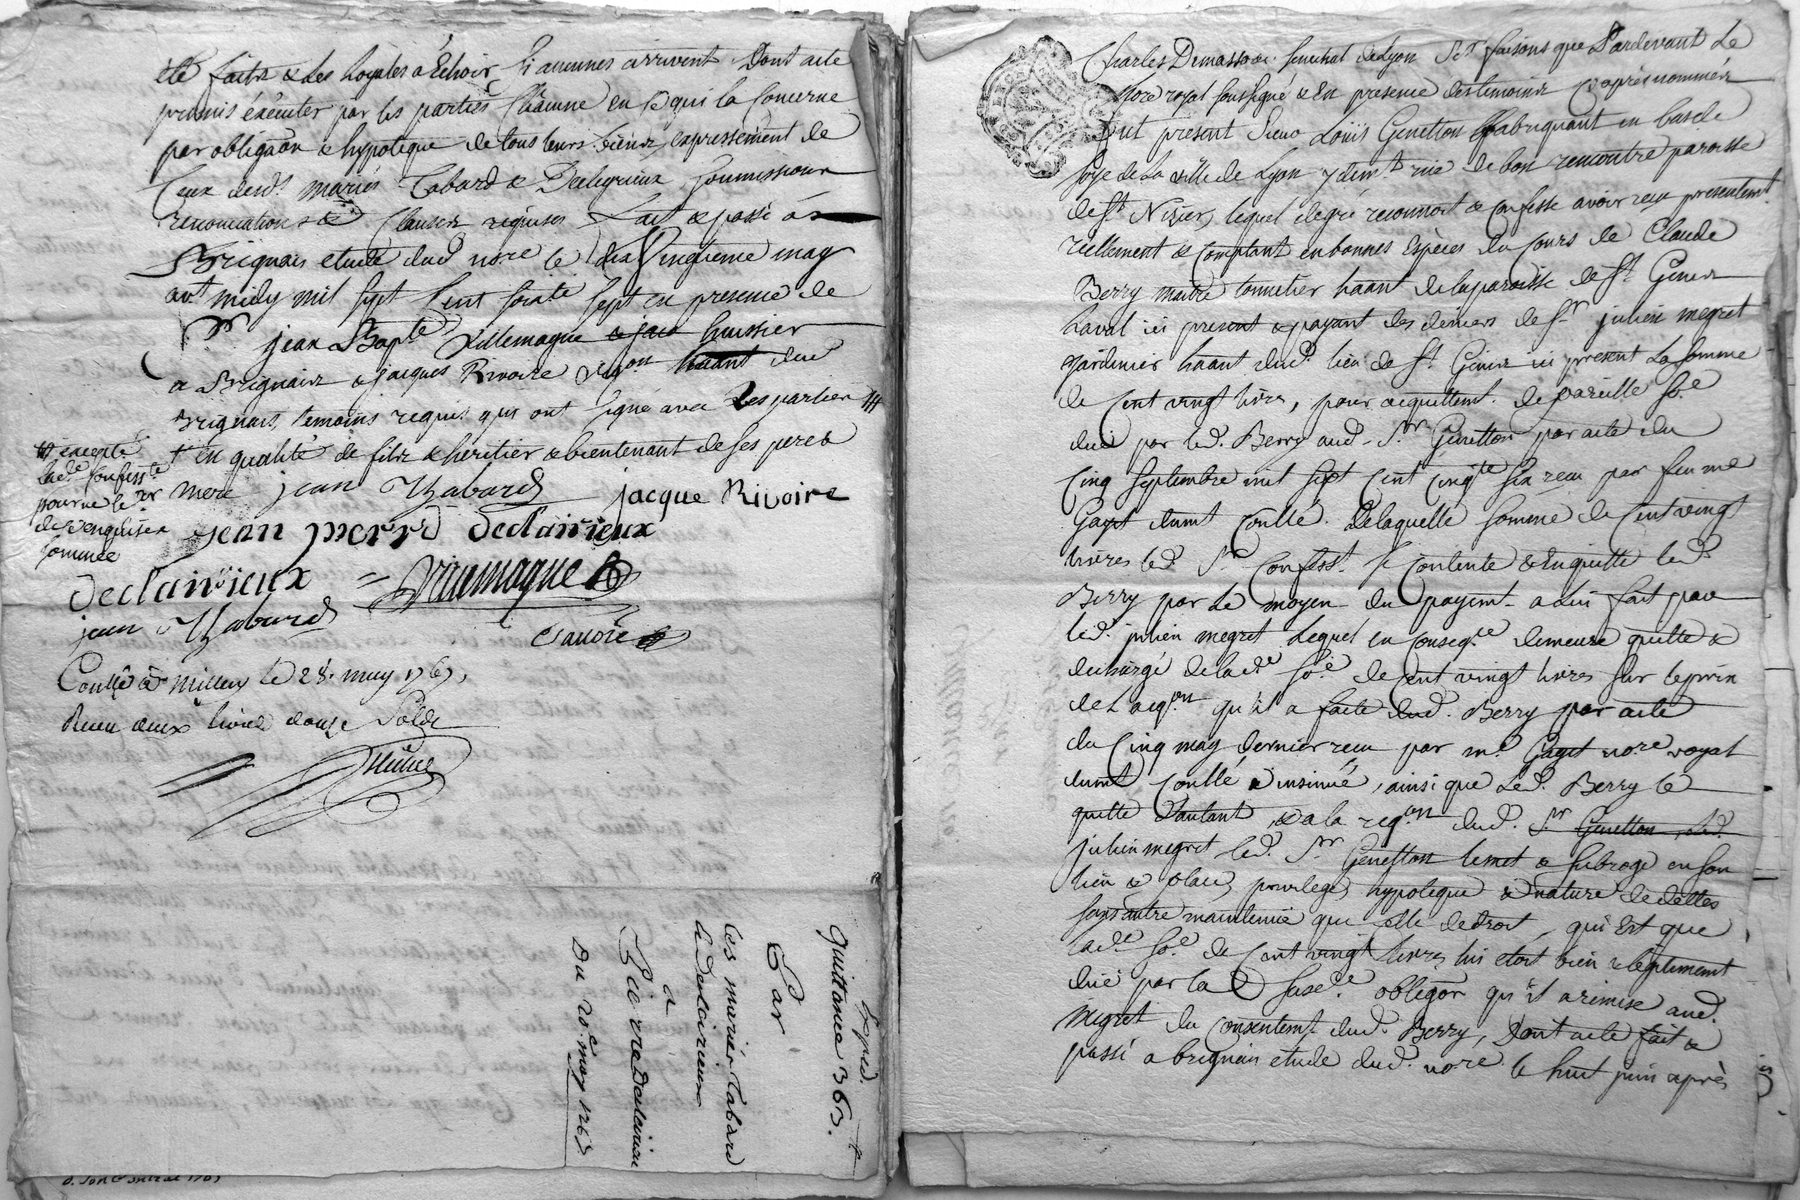 été faitte & des loyales a Echoir si aucunes arrivent Dont acte
promis éxécuter par les parties Chacune en ce qui la Concerne
par obligaon & hypoteque de tous leurs biens, expressement de
Ceux desd. mariés Tabard & soumissions
renonciations & Clauses requises fait & passé à
Brignais etude dud nore le Vingtieme may
avt midy mil sept Cent soixte sept en presence de
Sr. jean Bapte Villemagne huissier
a Brignais & jacques Rivoire dud
Brignais, temoins requis qui ont signé avec Les parties
+ en qualité de fils & héritier & bientenant de ses pere &
mere jean Thabard jacque Rivoire
excepté
lad.
pour ne le sr
de ce enquise &
sommée
jean pierre declairieux
declairieux Villemagne
jean Thabard
Conllé à Millery le 28. may 1767,
Receu deux livres douze Solds
Exped.
quittance 36
Par
les mariés Tabard
& Declairieux
a
Pierre Declairieux
Du 20e may 1767
Charles Demasso senechal de Lyon Sr. faisons que Pardevant Le
Nore royal soussigné & En presence des temoins Cy après nommés
fut présent Sieur Loüis Genetton fabriquant en bas de
soye de La ville de Lyon y demt. rue de bon rencontre paroisse
de St. Nizier, lequel de gré reconnoit & Confesse avoir reçu presentemt.
réellement & Comptant en bonnes Especes du Cours de Claude
Berry maitre tonnelier haant de la paroisse de St. Genis
Laval ici present & payant des deniers de Sr julien megret
jardinier haant dud. lieu de St. Genis ici present La somme
de Cent vingt livres, pour acquittemt. de pareille So.e
duë par led. Berry aud. Sr. Genetton par acte du
Cinq Septembre mil sept Cent Cinqte six reçu par feu me
Gayet dumt Conllé. De laquelle somme de Cent vingt
livres led. Sr. Confesst. se Contente & En quitte led.
Berry par Le moyen du payemt. a Lui fait par
led. julien megret Lequel en Conseqce demeure quitte &
déchargé de lad.e So.e de Cent vingt livres sur le prix
de L'acqon qu'il a faite dud. Berry par acte
du Cinq may dernier reçu par me. Gayet nore royal
dumt Conllé & insinué, ainsi que Led. Berry le
quitte d'autant, & a la reqon dud. Sr Genetton, Led.
julien megret led. Sr Genetton le met & subroge en son
lieu & place, privilege, hypoteque & nature de dettes
sans autre maintenüe que celle de droit, qui Est que
lad.e So.e de Cent vingt livres lui etoit bien & légitimemt
duë par la susd.e obligaon qu'il a remise aud.
Megret du Consentemt. dud. Berry, Dont acte fait &
passé a brignais etude dud. nore. le huit juin après